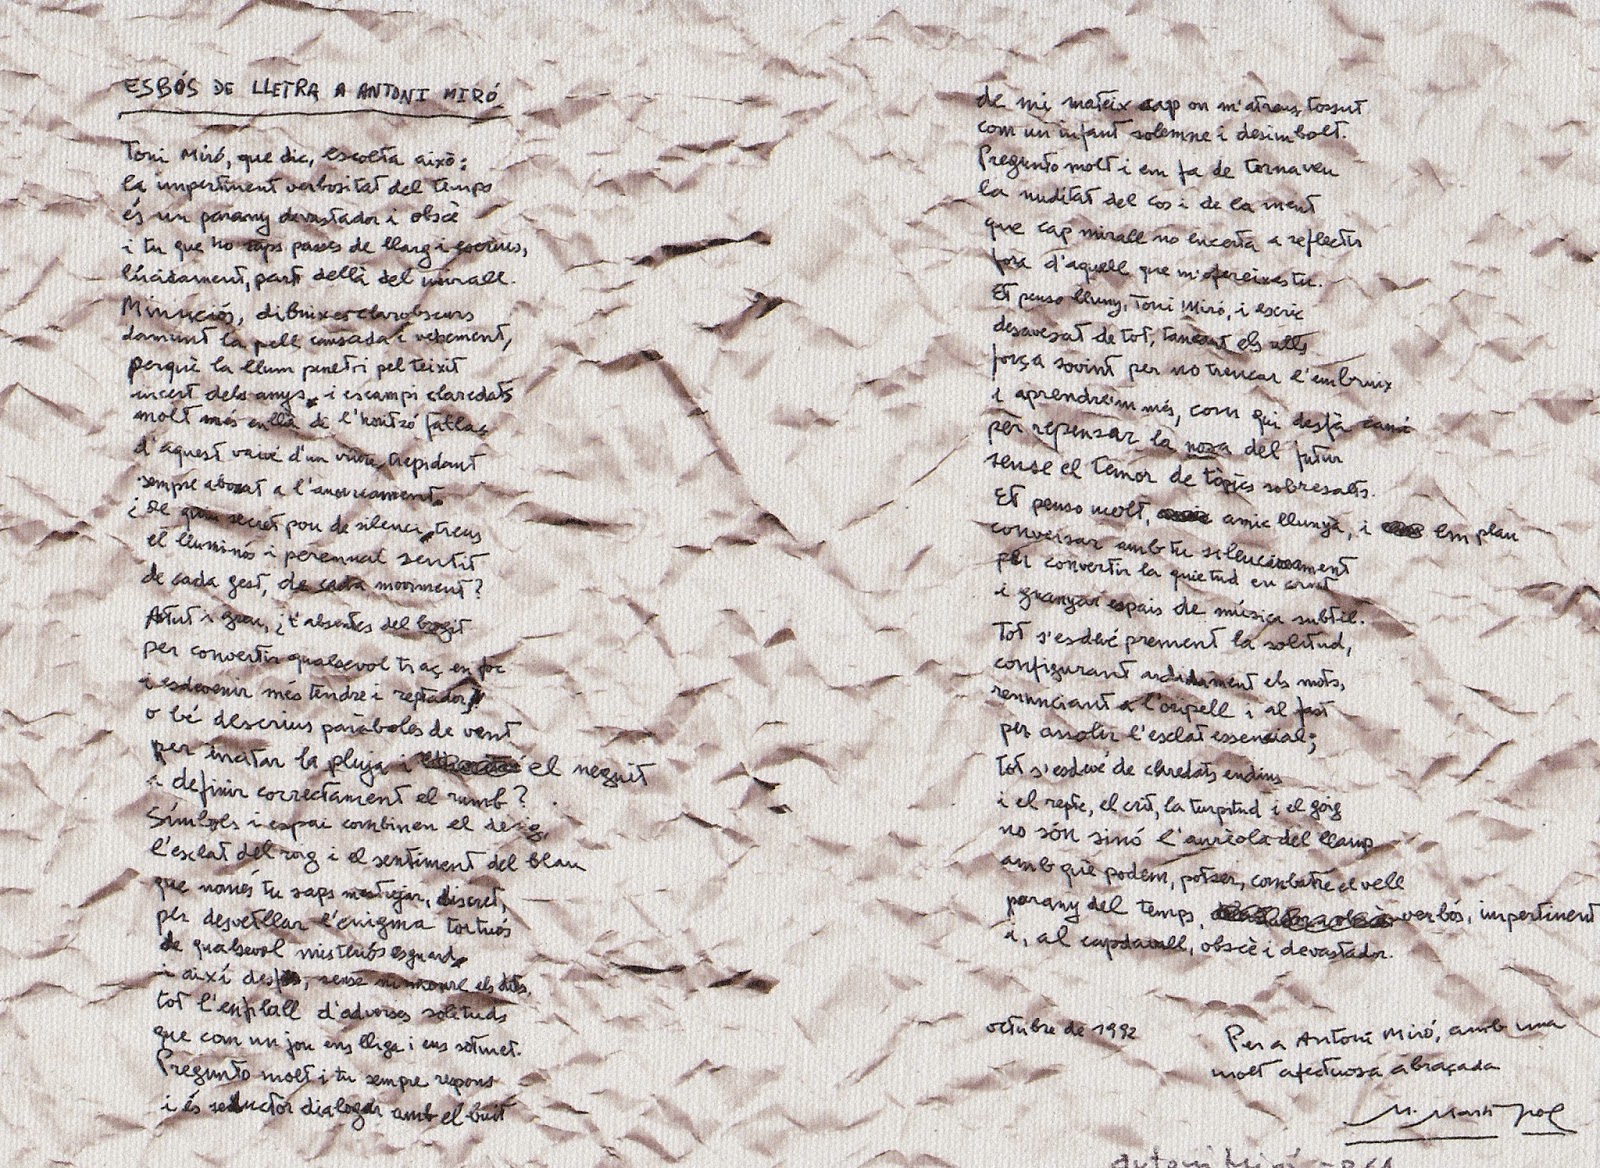 ESBÓS DE LLETRA A ANTONI MIRÓ
Toni Miró, que dic, escolta això:
la impertinent verbositat del temps
és un parany devastador i obscè
i tu que ho saps passes de llarg i escrius,
lúcidament, part dellà del mirall.
Minuciós, dibuixes clarobscurs
damunt la pell cansada i vehement,
perquè la llum penetri pel teixit
incert dels anys, i escampi claredats
molt més enllà de l'horitzó fal·laç
d'aquest vaivé d'un viure trepidant
sempre abocat a l'anorreament.
¿De quin secret pou de silenci, treus
el lluminós i perennal sentit
de cada gest, de cada moviment?
Astut i greu, ¿t'absentes del brogit
per convertir qualsevol traç en foc
i esdevenir més tendre i reptador,
o bé descrius paràboles de vent
per incitar la pluja i el neguit
a definir correctament el rumb?
Símbols i espai combinen el desig,
l'esclat del roig i el sentiment del blau
que només tu saps mestrejar, discret,
per desvetllar l'enigma tortuós
de qualsevol misteriós esguard,
i així desfàs, sense ni moure els dits,
tot l'enfilall d'adverses solituds
que com un jou ens lliga i ens sotmet.
Pregunto molt i tu sempre respons
i és seductor dialogar amb el buit
de mi mateix cap on m'atreus, tossut
com un infant solemne i desimbolt.
Pregunto molt i em fa de tornaveu
la nuditat del cos i de la ment
que cap mirall no encerta a reflectir
fora d'aquell que m'ofereixes tu.
Et penso lluny, Toni Miró, i escric
desavesat de tot, tancant els ulls
força sovint per no trencar l'embruix
i aprendre'm més, com qui desfà camí
per repensar la nosa del futur
sense el temor de tòpics sobresalts.
Et penso molt, amic llunyà, i em plau
conversar amb tu silenciosament
per convertir la quietud en crit
i guanyar espais de música subtil.
Tot s'esdevé prement la solitud,
configurant ardidament els mots,
renunciant a l'oripell i al fast
per assolir l'esclat essencial;
tot s'esdevé de claredats endins
i el repte, el crit, la turpitud i el goig
no són sinó l'aurèola del llamp
amb què podem, potser, combatre el vell
parany del temps, verbós, impertinent
i, al capdavall, obscè i devastador.
octubre de 1992
Per a Antoni Miró, amb una
molt afectuosa abraçada
M. Martí Pol